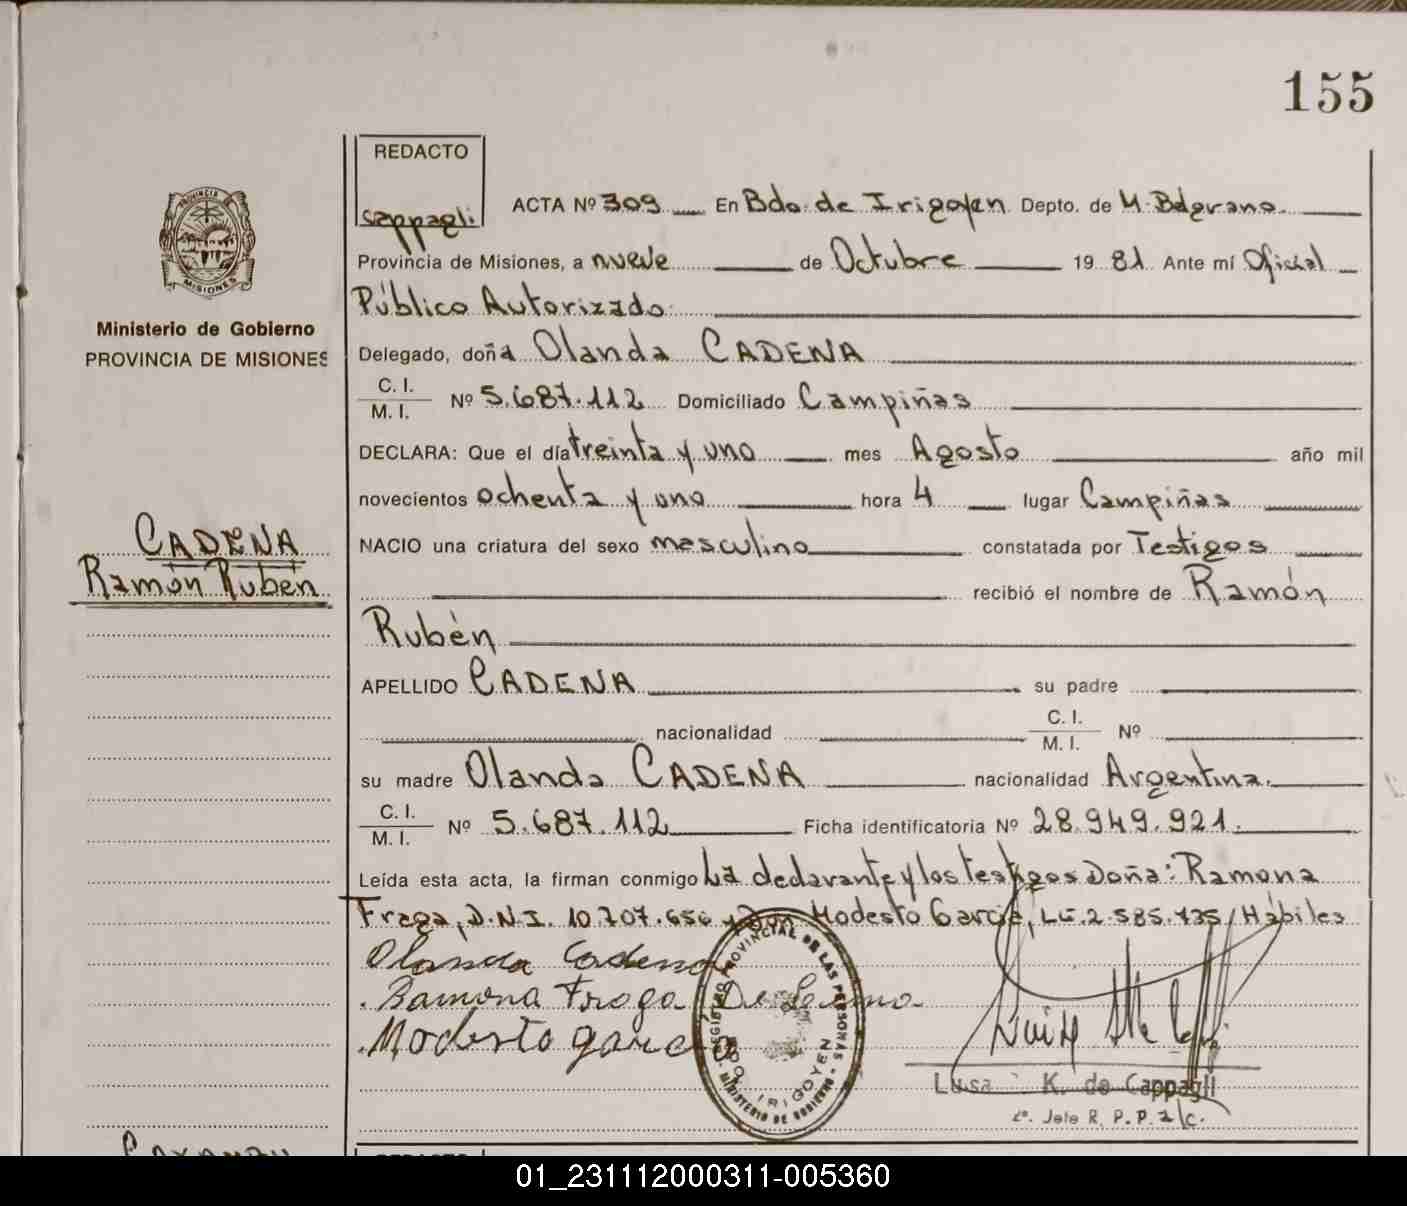 155
REDACTO
Cappagli
ACTA Nº 309 En Bdo. de Irigoyen Depto. de M. Belgrano.
Provincia de Misiones, a nueve de Octubre 19 81 Ante mí Oficial
Público Autorizado
Delegado, doña Olanda CADENA
C. I.
M. I.
Nº 5.687.112 Domiciliado Campiñas
DECLARA: Que el día treinta y uno mes Agosto año mil
novecientos ochenta y uno hora 4 lugar Campiñas
NACIO una criatura del sexo masculino constatada por Testigos
recibió el nombre de Ramón
Rubén
APELLIDO CADENA su padre
nacionalidad C. I.
M. I. Nº
su madre Olanda CADENA nacionalidad Argentina.
C. I.
M. I.
Nº 5.687.112 Ficha identificatoria Nº 28.949.921.
Leída esta acta, la firman conmigo La declarante y los testigos Doña: Ramona
Fraga, D.N.I. 10.707.656 y Don Modesto García, L.E. 2.585.735/Hábiles
Olanda Cadena
Ramona Fraga De
Modesto garcia
PROVINCIA DE
MISIONES
Ministerio de Gobierno
PROVINCIA DE MISIONES
CADENA
Ramón Ruben
REGISTRO PROVINCIAL DE LAS PERSONAS
MINISTERIO DE GOBIERNO
BDO. IRIGOYEN
Luisa K. de Cappagli
2º. Jefe R. P. P. a/c.
REDACTO
01_231112000311-005360